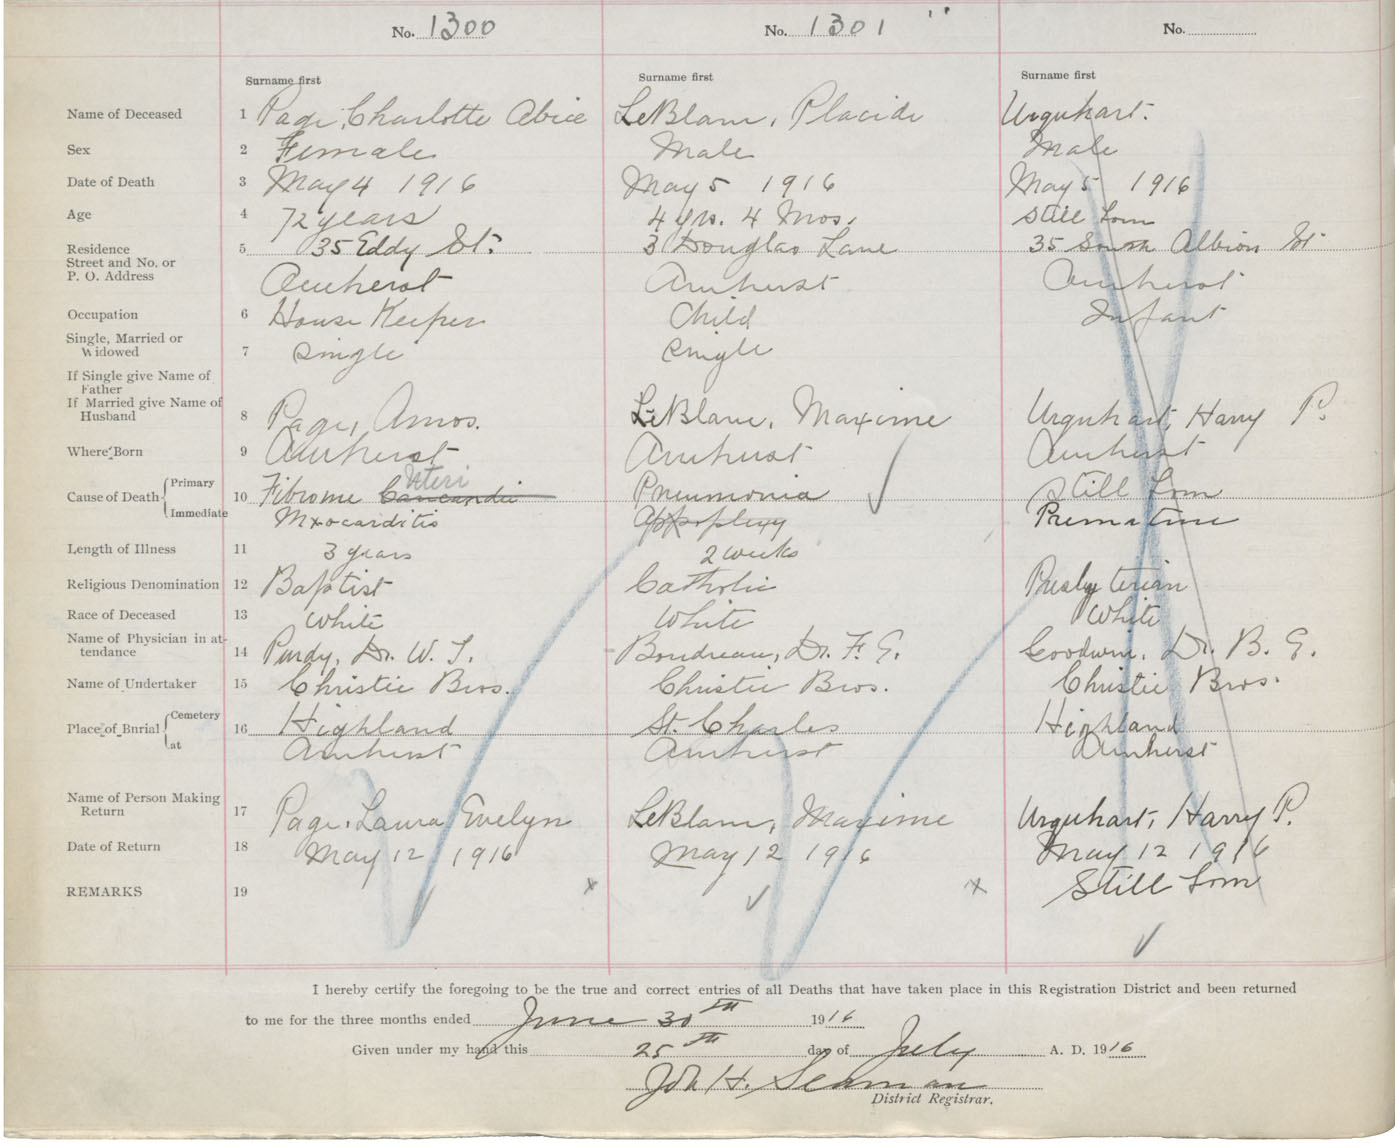 No. 1300 No. 1301 No.
Surname first Surname first Surname first
Name of Deceased 1 Page, Charlotte Alice LeBlanc, Placide Urquhart.
Sex 2 Female Male Male
Date of Death 3 May 4 1916 May 5 1916 May 5 1916
Age 4 72 years 4 yrs. 4 Mos. Still born
Residence 5 35 Eddy St. 3 Douglas Lane 35 South Albion St
Street and No. or
P. O. Address Amherst Amherst Amherst
Occupation 6 House Keeper Child Infant
Single, Married or
Widowed 7 Single Single
If Single give Name of
Father
If Married give Name of
Husband 8 Page, Amos. LeBlanc, Maxime Urquhart, Harry P.
Where Born 9 Amherst Amherst Amherst
Uteri
Cause of Death Primary 10 Fibrome Pneumonia Still born
Immediate Myocarditis Appoplexy Premature
Length of Illness 11 3 years 2 weeks
Religious Denomination 12 Baptist Catholic Presbyterian
Race of Deceased 13 White White White
Name of Physician in at-
tendance 14 Purdy, Dr. W. T. Boudreau, Dr. F. E. Goodwin, Dr. B. E.
Name of Undertaker 15 Christie Bros. Christie Bros. Christie Bros.
Place of Burial Cemetery 16 Highland St. Charles Highland
at Amherst Amherst Amherst
Name of Person Making
Return 17 Page, Laura Evelyn LeBlanc, Maxime Urquhart, Harry P.
Date of Return 18 May 12 1916 May 12 1916 May 12 1916
REMARKS 19 x x Still born
I hereby certify the foregoing to be the true and correct entries of all Deaths that have taken place in this Registration District and been returned
to me for the three months ended June 30TH 1916
Given under my hand this 25TH day of July A. D. 1916
Joh H. Seaman
District Registrar.